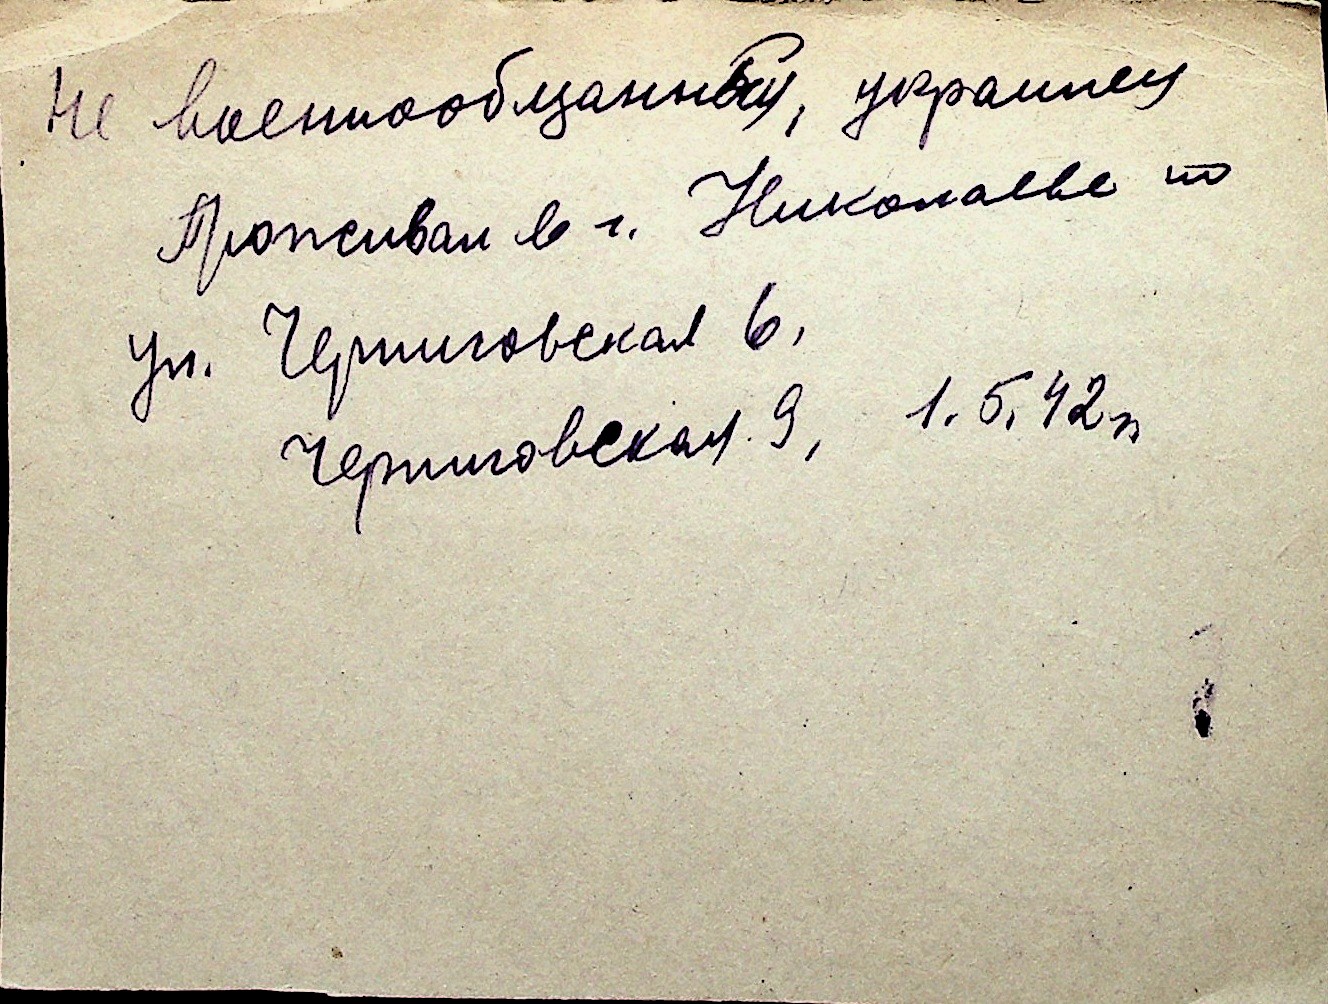 Не военнообщанный, украинец
Проживал в г. Николаеве по
ул. Черниговская 6,
Черниговская 9, 1.5.42г